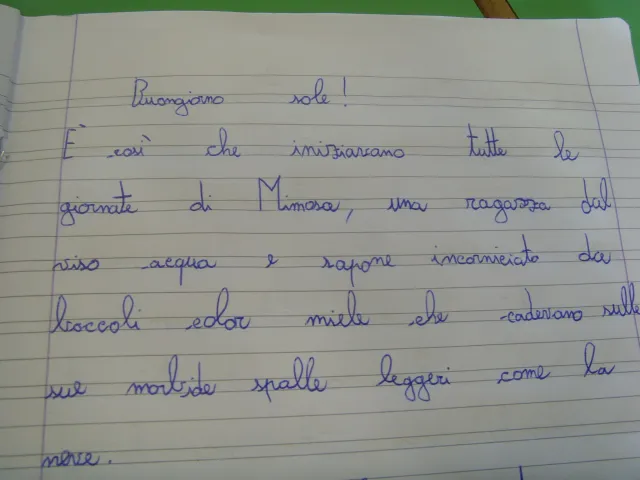 Buongiorno sole!
È così che iniziavano tutte le
giornate di Mimosa, una ragazza dal
viso acqua e sapone incorniciato da
boccoli color miele che cadevano sulle
sue morbide spalle leggeri come la
neve.